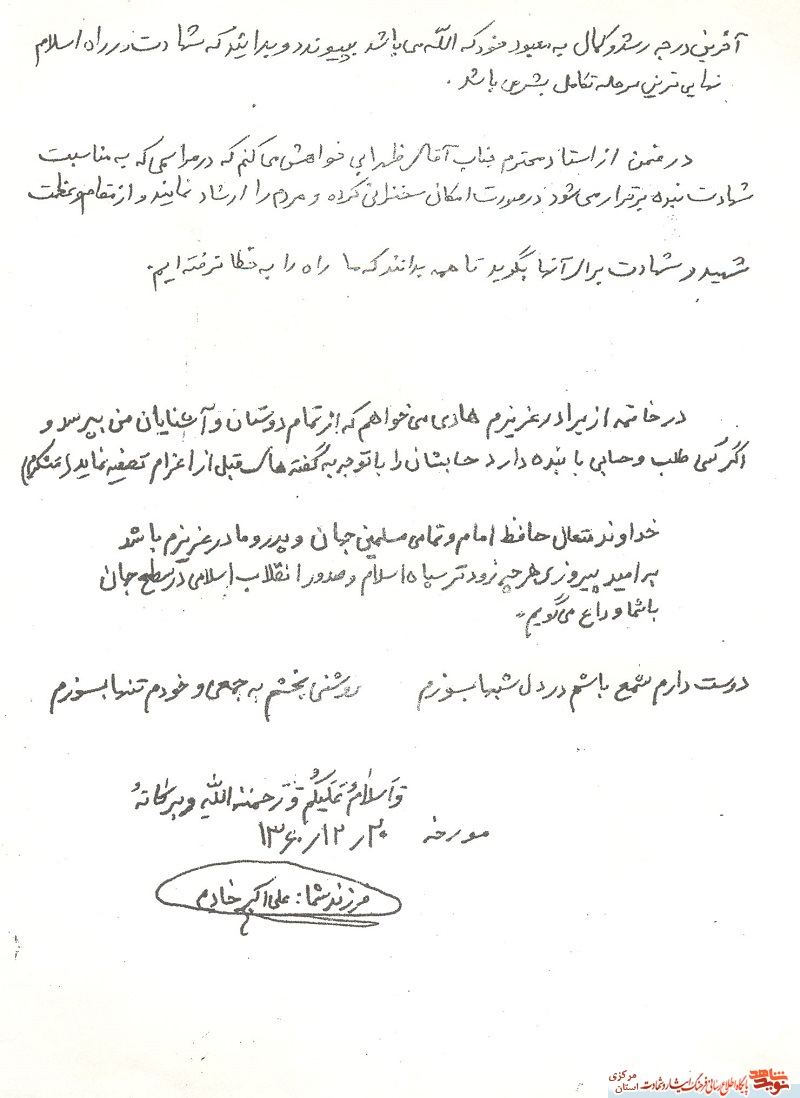 آخرین درجه رشد و کمال به معبود خود که الله می باشد بپیوندد و بدانید که شهادت در راه اسلام
نهایی ترین مرحله تکامل بشر می باشد .
در ضمن از استاد محترم جناب آقای ظهرابی خواهش می کنم که در مراسمی که به مناسبت
شهادت بنده برقرار می شود در صورت امکان سخنرانی کرده و مردم را ارشاد نمایند و از مقام و عظمت
شهید و شهادت برای آنها بگوید تا همه بدانند که ما راه را به خطا نرفته ایم.
در خاتمه از برادر عزیزم هادی می خواهم که از تمام دوستان و آشنایان من بپرسد و
اگر کسی طلب و حسابی با بنده دارد حسابشان را با توجه به گفته های قبل از اعزام تصفیه نماید (متشکرم)
خداوند متعال حافظ امام و تمامی مسلمین جهان و پدر و مادر عزیزم باشد
به امید پیروزی هر چه زودتر سپاه اسلام و صدور انقلاب اسلامی در سطح جهان
با شما وداع می گویم.
دوست دارم شمع باشم در دل شبها بسوزم روشنی بخشم به جمعی و خودم تنها بسوزم
وَالسَّلامُ عَلَیکُم وَ رَحمَةُ اللّهِ وَ بَرَکاتُهُ
مورخه ۱۳۶۰/۱۲/۲۰
فرزند شما: علی اکبر خادم
نوید شاهد
پایگاه اطلاع رسانی فرهنگ ایثار و شهادت استان مرکزی